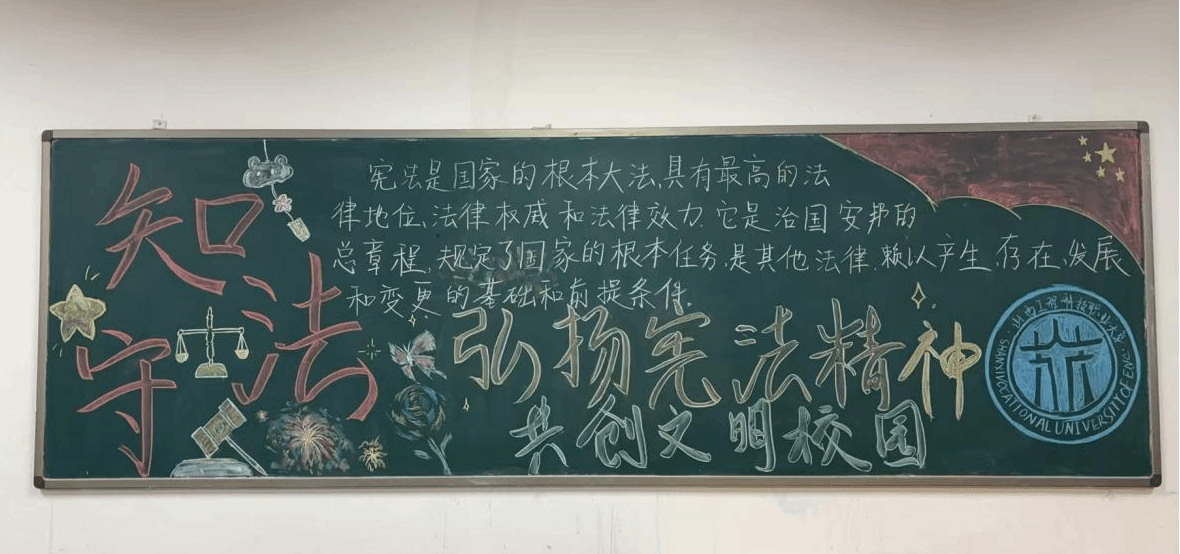 知法
守法
宪法是国家的根本大法,具有最高的法
律地位、法律权威和法律效力.它是治国安邦的
总章程,规定了国家的根本任务,是其他法律赖以产生、存在、发展
和变更的基础和前提条件.
弘扬宪法精神
共创文明校园
山西工程科技职业大学
SHANXI VOCATIONAL UNIVERSITY OF ENG